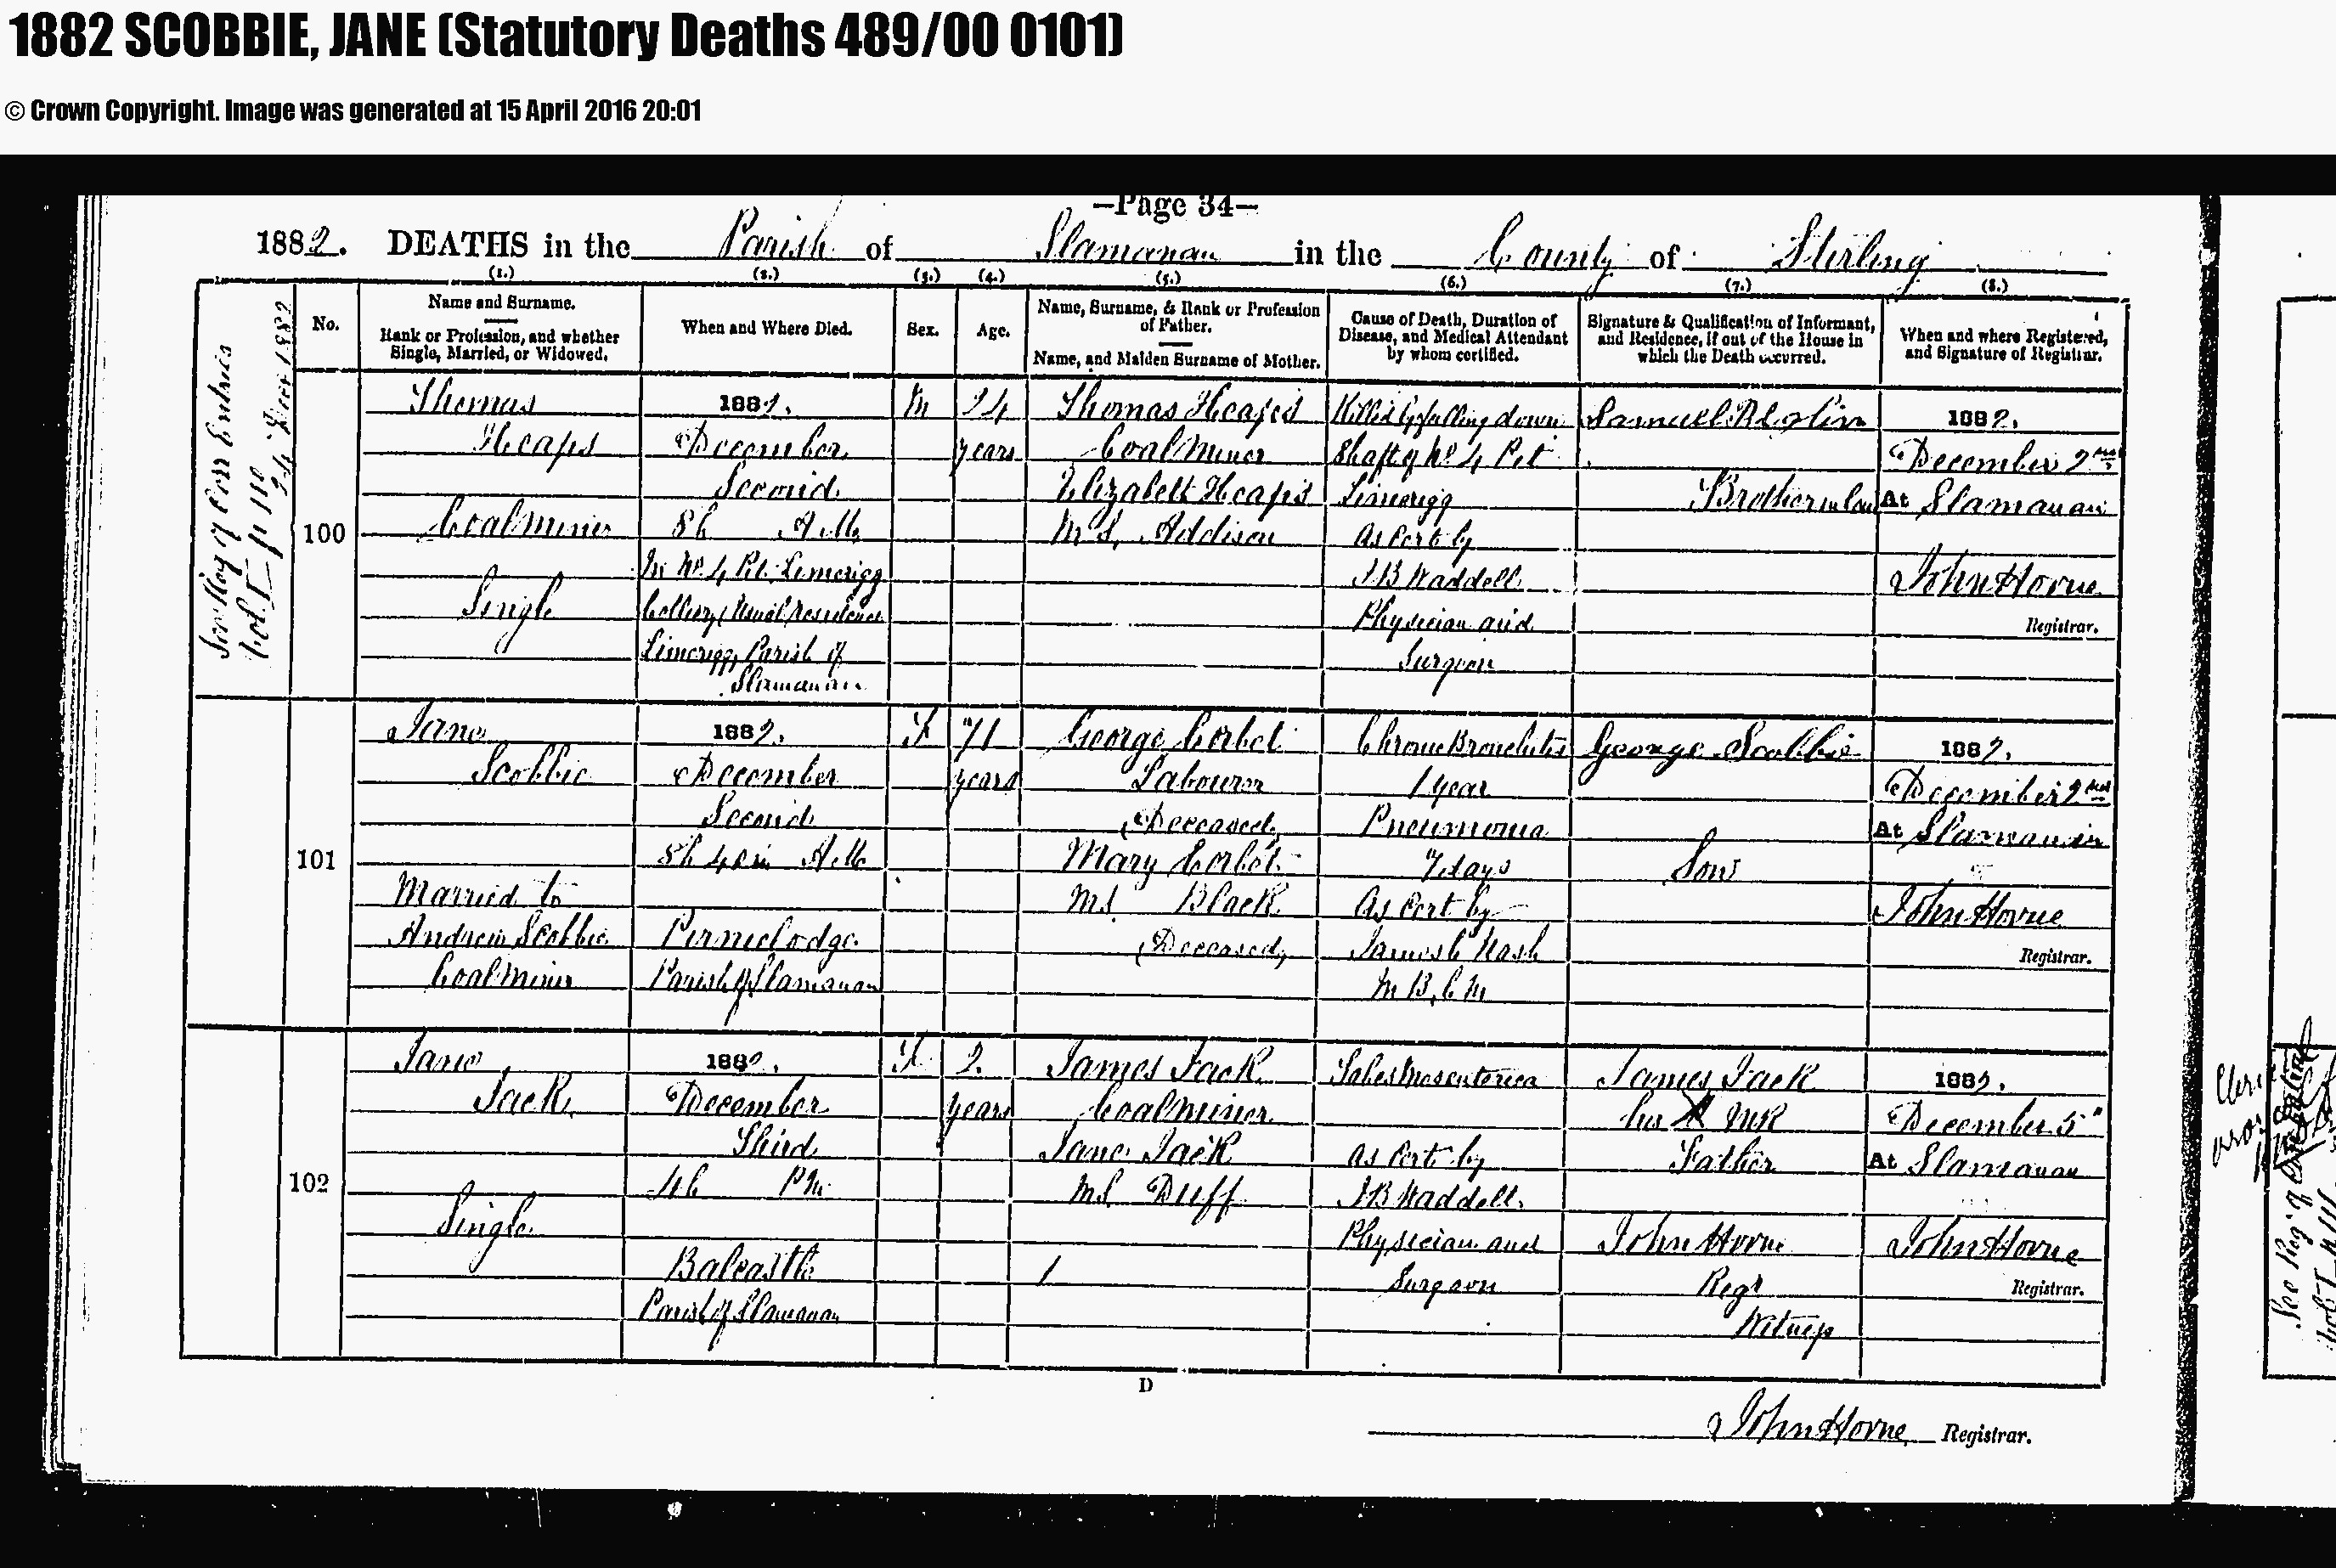 1882 SCOBBIE, JANE (Statutory Deaths 489/00 0101)
© Crown Copyright. Image was generated at 15 April 2016 20:01
—Page 34—
1882. DEATHS in the Parish of Slamanan in the County of Stirling
(1.) (2.) (3.) (4.) (5.) (6.) (7.) (8.)
No.
Name and Surname.
Rank or Profession, and whether
Single, Married, or Widowed.
When and Where Died.
Sex.
Age.
Name, Surname, & Rank or Profession
of Father.
Name, and Maiden Surname of Mother.
Cause of Death, Duration of
Disease, and Medical Attendant
by whom certified.
Signature & Qualification of Informant,
and Residence, if out of the House in
which the Death occurred.
When and where Registered,
and Signature of Registrar.
See Reg of Corr Entries
Vol I p
Decr 1882
100
Thomas
Heaps
Coalminer
Single
1882.
December
Second
8h A.M.
In No. 4 Pit Limerigg
Colliery (Usual residence
Limerigg, Parish of
Slamanan
M
24
years
Thomas Heaps
Coalminer
Elizabeth Heaps
M.S. Addison
Killed by falling down
Shaft of No 4 Pit
Limerigg
As Cert by
J.B. Waddell
Physician and
Surgeon
Samuel
Brother in law
1882.
December 2nd
At Slamanan
John Horne
Registrar.
101
Jane
Scobbie
Married to
Andrew Scobbie
Coalminer
1882.
December
Second
8h 40m A.M.
Pirnielodge
Parish of Slamanan
F
71
years
George Corbet
Labourer
(Deceased)
Mary Corbet
M.S. Black
(Deceased)
Chronic Bronchitis
1 year
Pneumonia
7 days
As Cert by
James C Nash
M B, C M
George Scobbie
Son
1882.
December 2nd
At Slamanan
John Horne
Registrar.
102
Jane
Jack
Single
1882.
December
Third
4h P.M.
Balcastle
Parish of Slamanan
F
2
years
James Jack
Coalminer
Jane Jack
M.S. Duff
Tabes Mesenterica
As Cert by
J.B. Waddell
Physician and
Surgeon
James Jack
his X MK
Father
John Horne
Regr
Witness
1882.
December 5"
At Slamanan
John Horne
Registrar.
D
John Horne Registrar.
See Reg of
Vol I